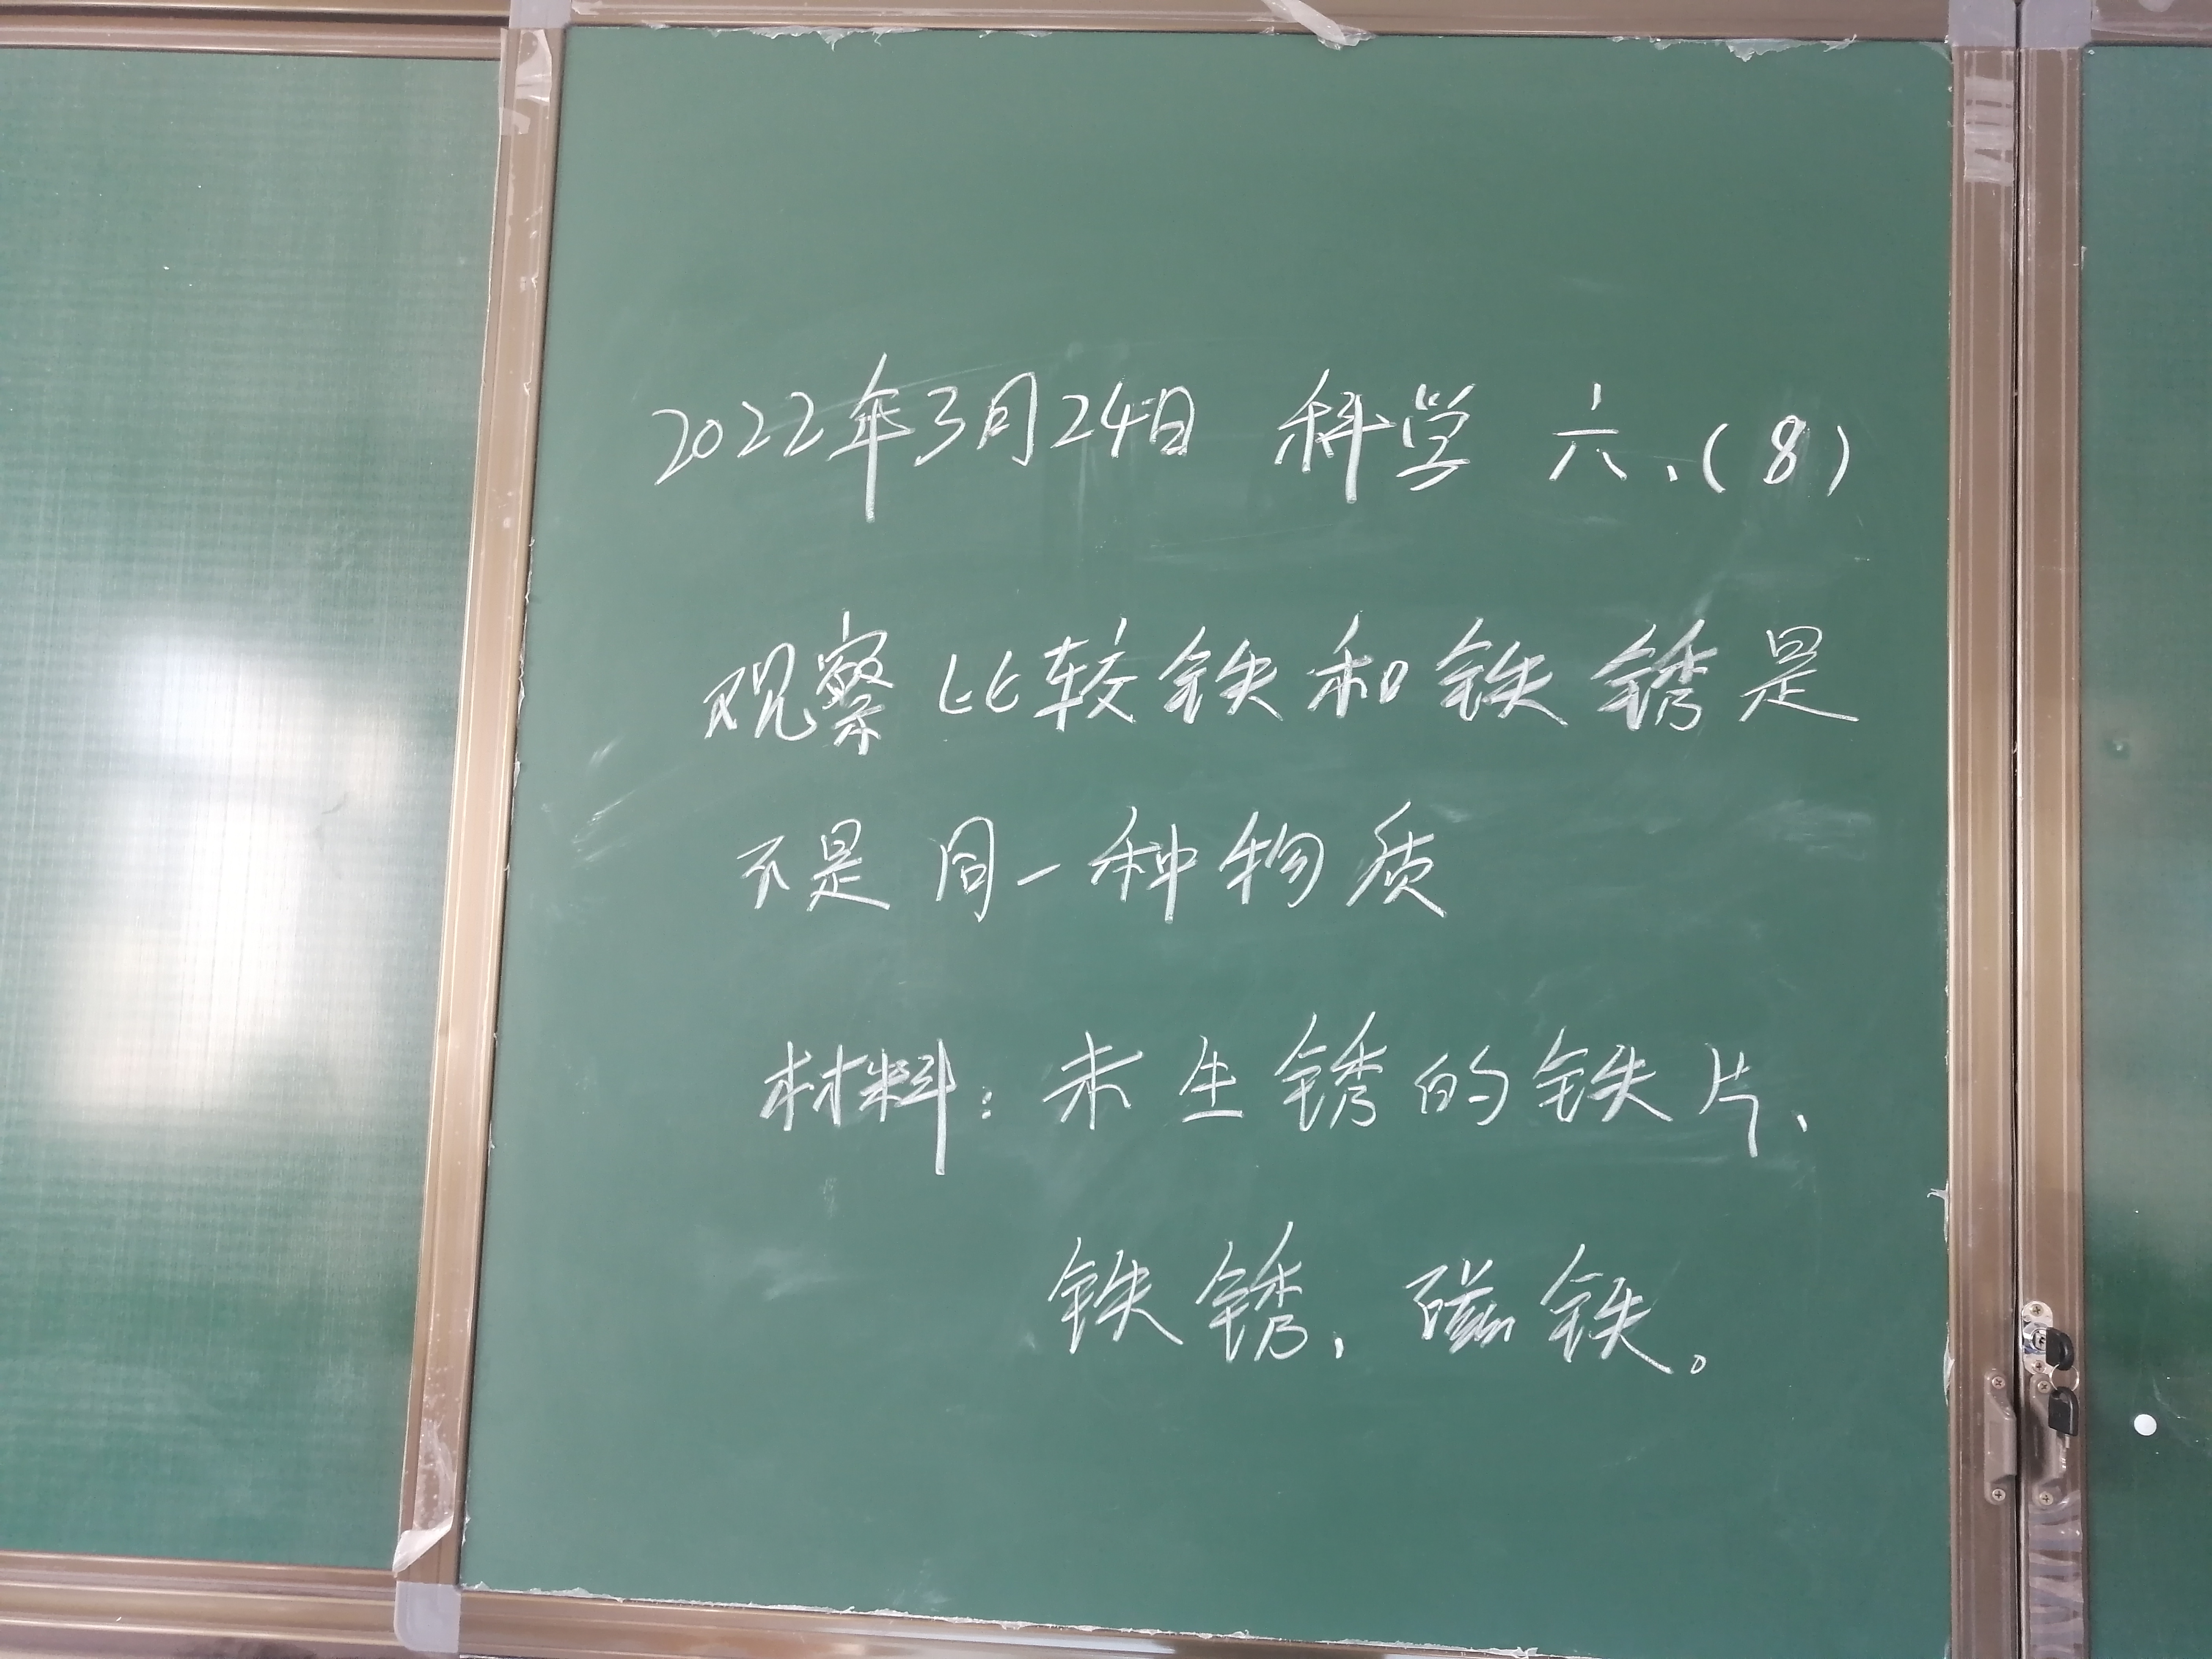 2022年3月24日 科学 六、(8)
观察比较铁和铁锈是
不是同一种物质
材料：未生锈的铁片、
铁锈、磁铁。